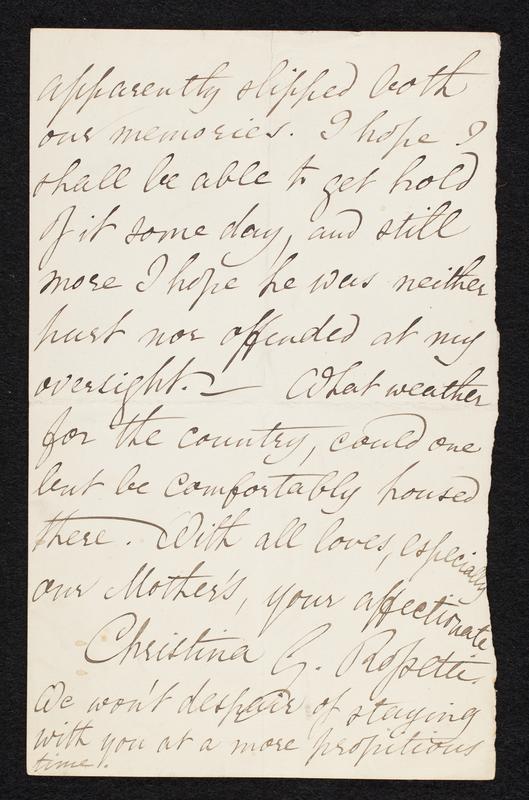 apparently slipped both
our memories. I hope I
shall be able to get hold
of it some day, and still
more I hope he was neither
hurt nor offended at my
oversight. — What weather
for the country, could one
but be comfortably housed
there. With all loves, especially
our Mother's, your affectionate
Christina G. Rossetti.
We won't despair of staying
with you at a more propitious
time.